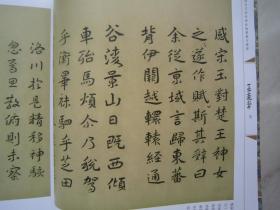 感宋玉對楚王神女
之遂作賦斯其辞曰
余從京域言歸東藩
背伊闕越轘轅經通
谷凌景山日既西傾
車殆馬煩尒乃稅駕
乎蘅皋秣駟乎芝田
洛川於是精移神駭
忽焉思散俯則未察